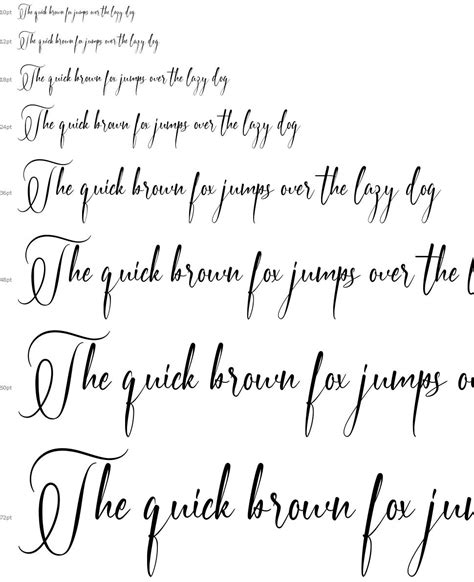 10pt The quick brown fox jumps over the lazy dog
12pt The quick brown fox jumps over the lazy dog
18pt The quick brown fox jumps over the lazy dog
24pt The quick brown fox jumps over the lazy dog
36pt The quick brown fox jumps over the lazy dog
48pt The quick brown fox jumps over the l
60pt The quick brown fox jumps o
72pt The quick brown fox jum